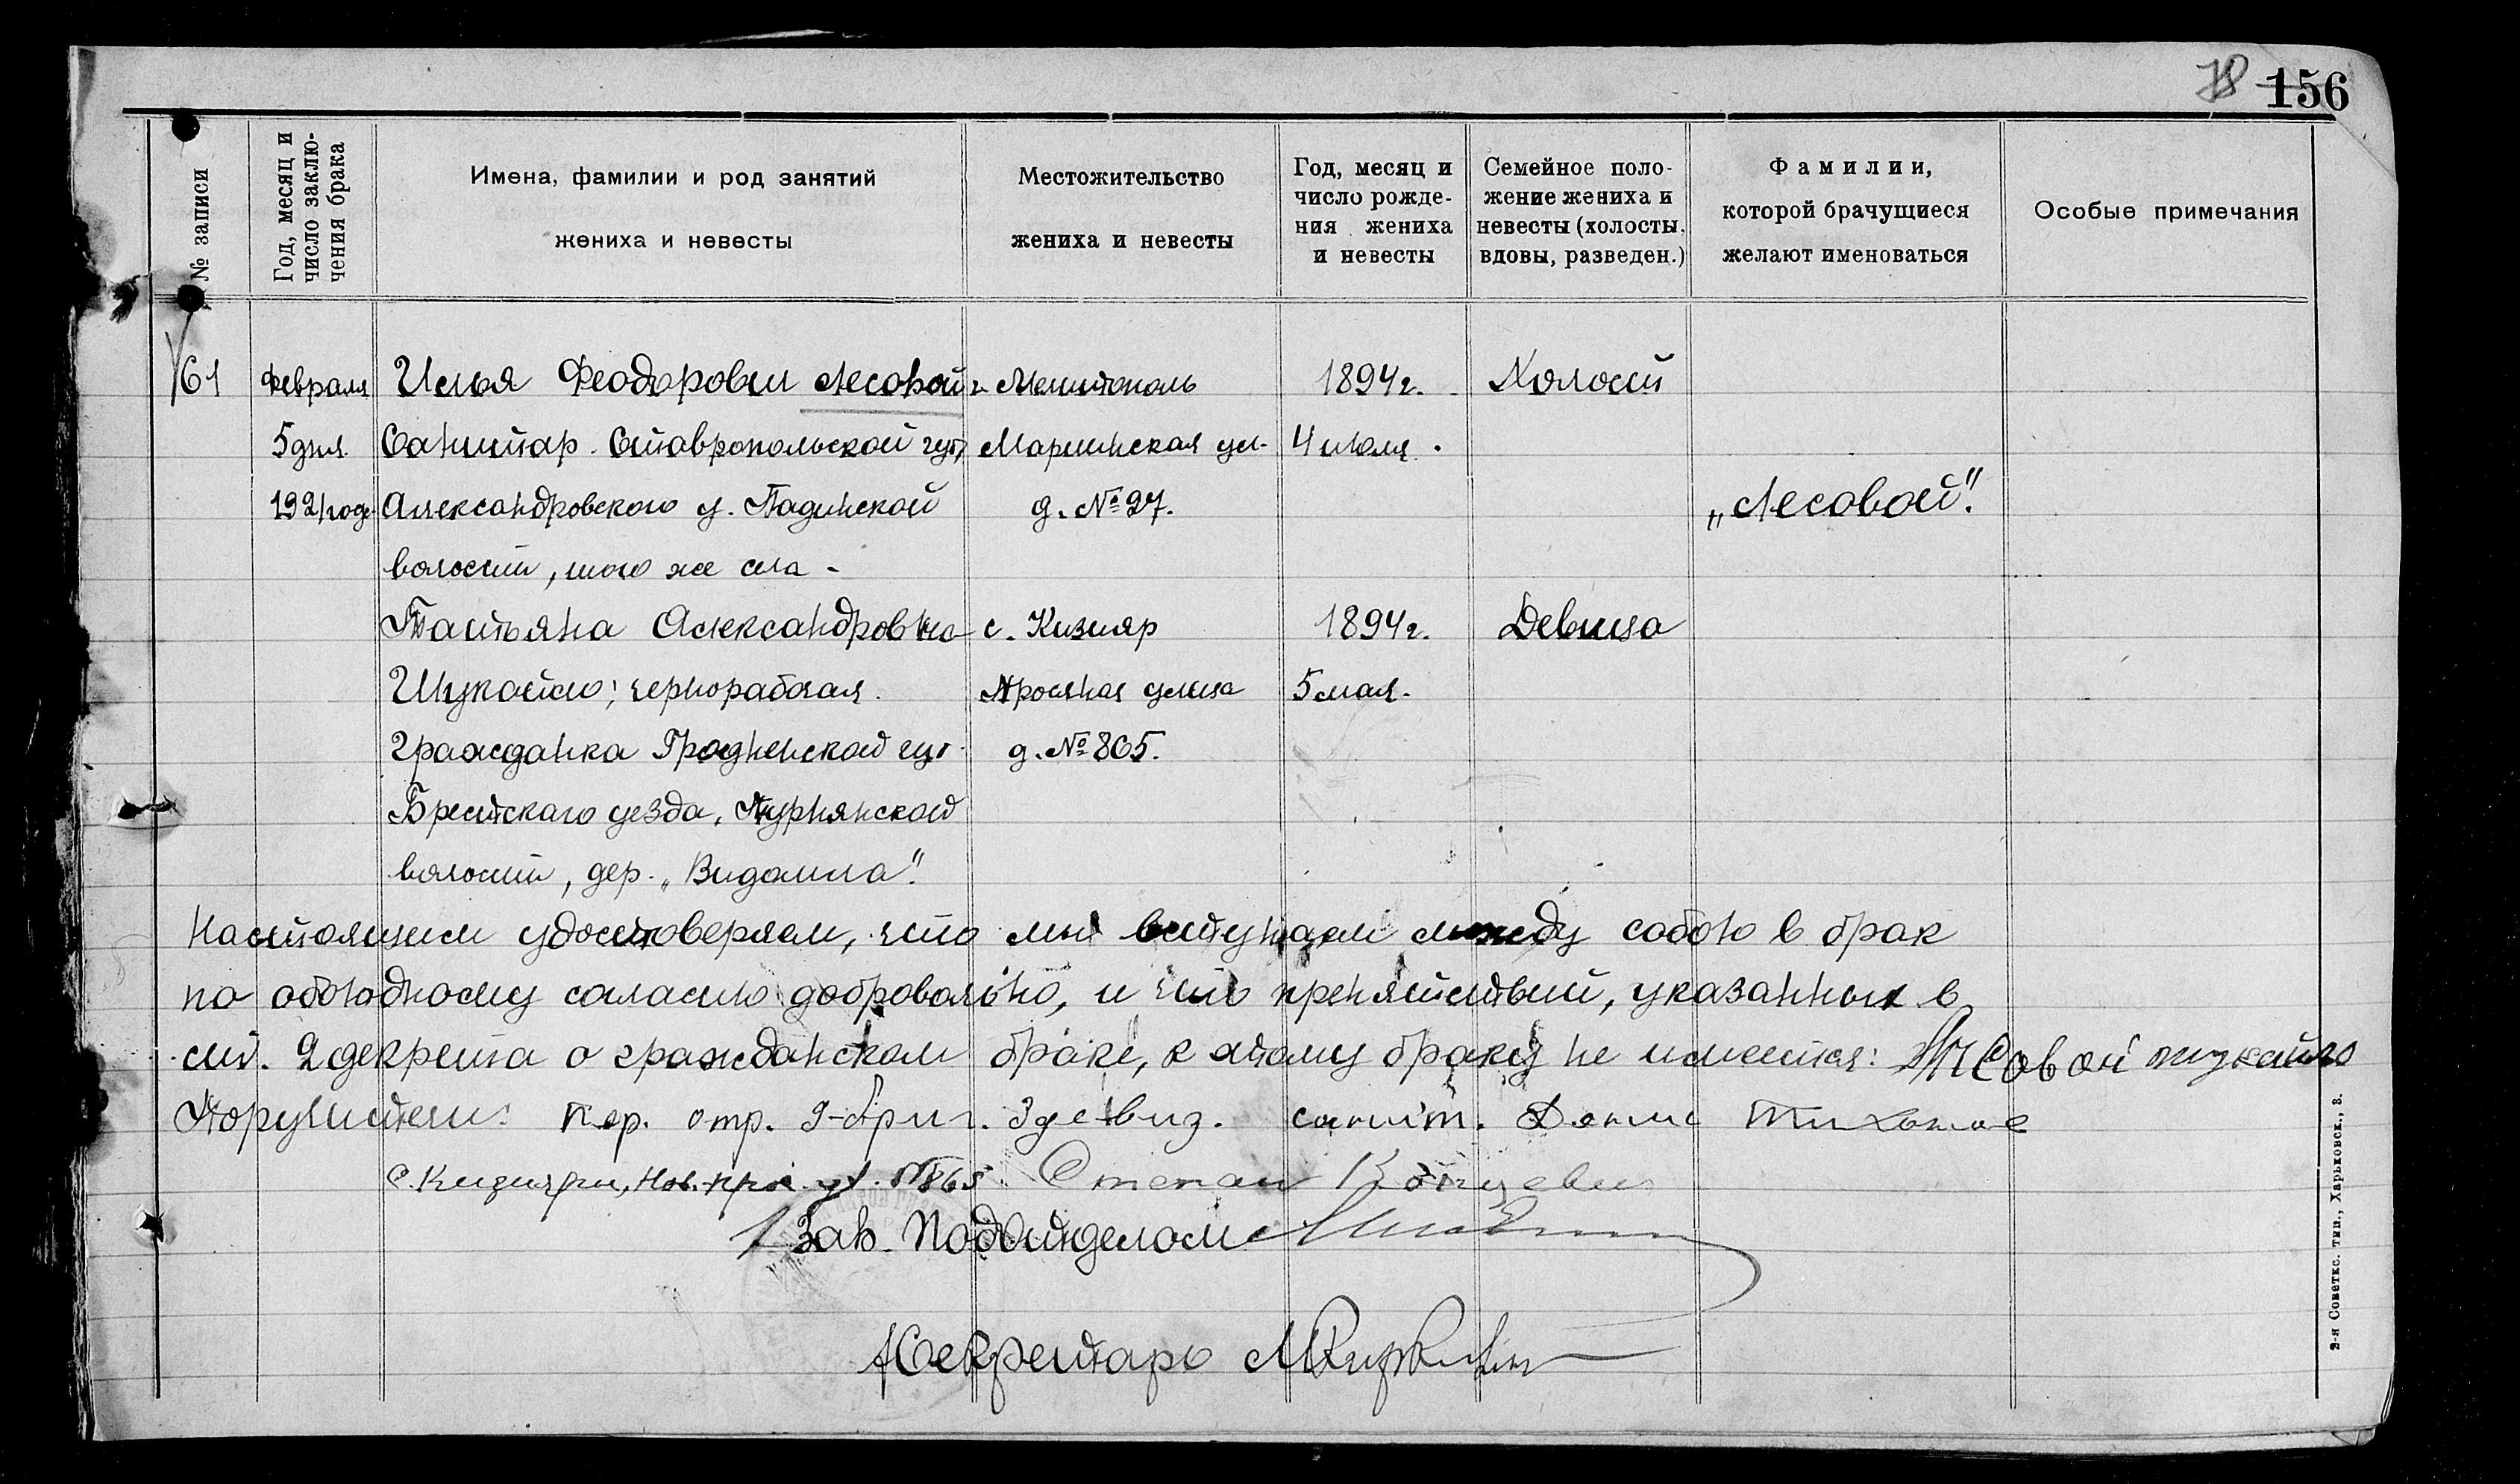 78 156
№ записи
Год, месяц и
число заклю-
чения брака
Имена, фамилии и род занятий
жениха и невесты
Местожительство
жениха и невесты
Год, месяц и
число рожде-
ния жениха
и невесты
Семейное поло-
жение жениха и
невесты (холосты,
вдовы, разведен.)
Фамилии,
которой брачущиеся
желают именоваться
Особые примечания
61 февраля Илья Феодорович Лесовой г. Мелитополь 1894 г. Холост
5 дня Санитар. Ставропольской губ, Мариинская ул. 4 июля.
1921 года Александровского у. Падинской д. № 27. „Лесовой".
волости, того же села -
Татьяна Александровна с. Кизияр 1894 г. Девица
Шукайло; чернорабочая. улица 5 мая.
гражданка Гродненской губ. д. № 865.
Брестского уезда, Турнянской
волости, дер. „Видомла".
Настоящим удостоверяем, что мы вступаем между собою в брак
по обоюдному согласию добровольно, и что препятствий, указанных в
ст. 2 декрета о гражданском браке, к этому браку не имеется: Лесовой шукайло
Поручители: Пер. отр. 9-бриг. 3 девиз. санит.
с. Кизияри, ул. № 865 Степан
Зав. Подотделом
Секретарь
2-я Советск. тип., Харьковск., 3.